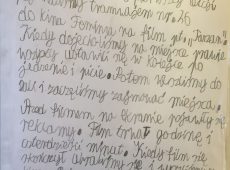 tramwajem nr. 26
do kina Femina na film pt. „Tarzan".
Kiedy dojechaliśmy na miejsce prawie
wszyscy ustawili się w kolejce po
jedzenie i picie. Potem weszliśmy do
sali i zaczęliśmy zajmować miejsca.
Przed filmem na ekranie pojawiły się
reklamy. Film trwał godzinę i
czterdzieści minut. Kiedy film się
skończył ubraliśmy się i